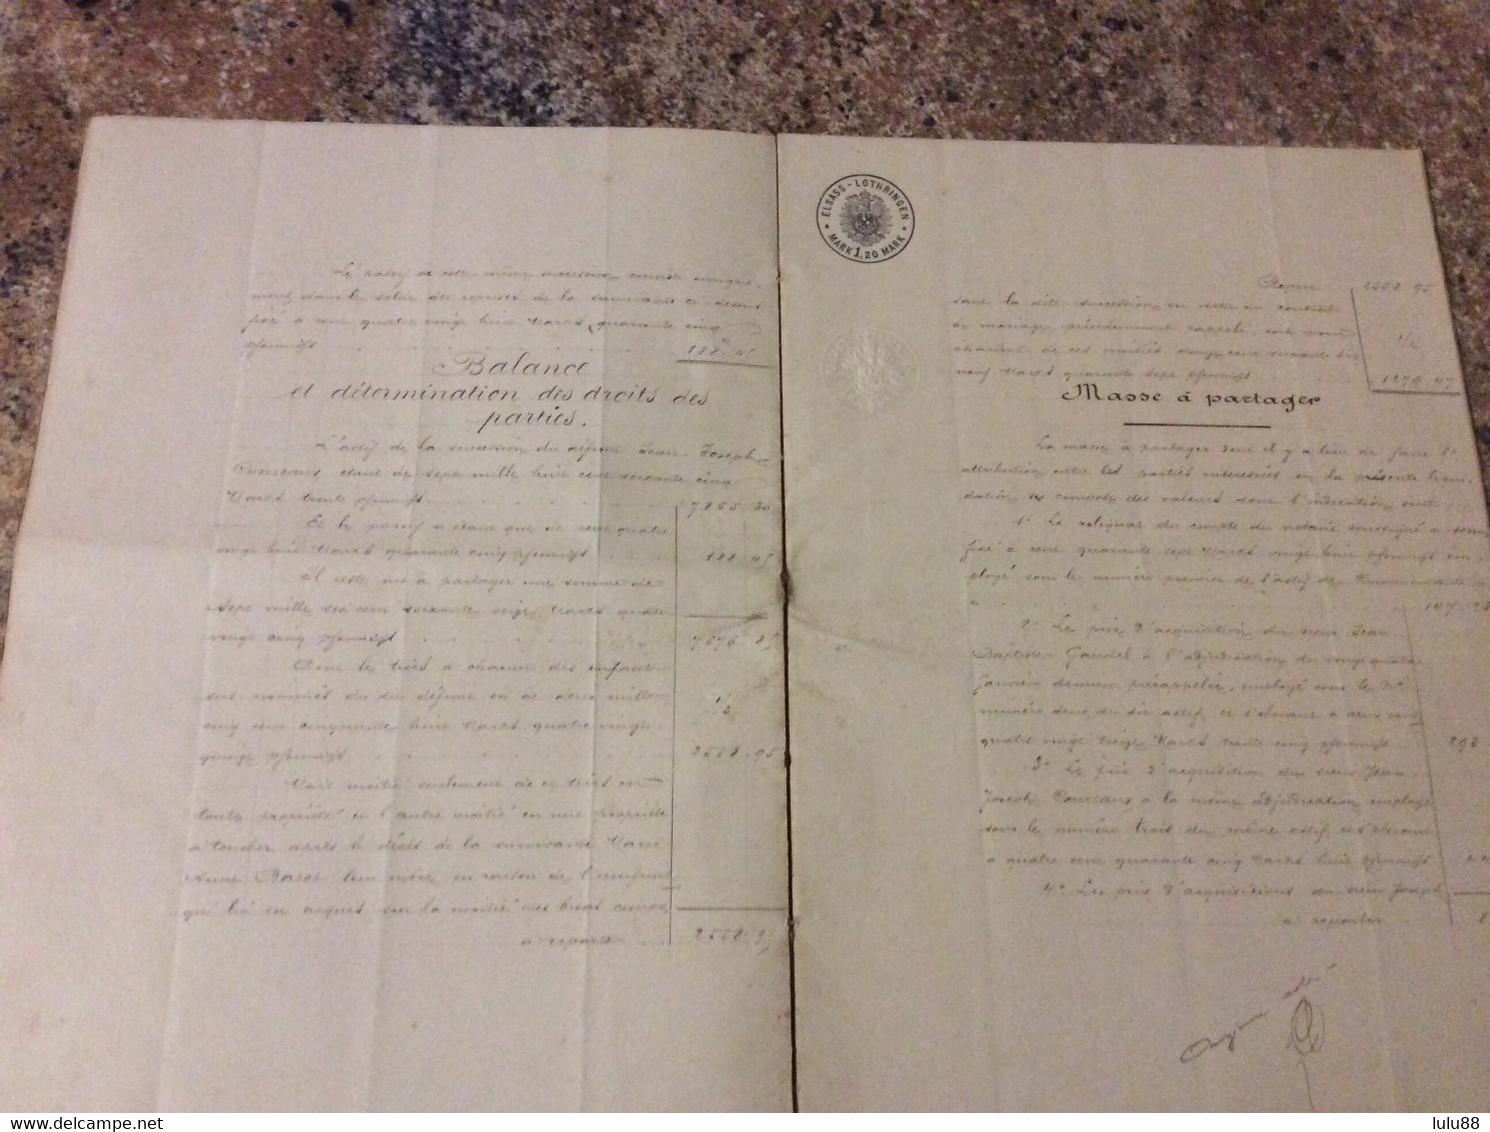 Le passif de cette même succession consiste unique-
ment dans le solde des reprises de la survivante ci dessus
fixé à cent quatre vingt huit Marks quarante cinq
pfennigs 188.45
Balance
et détermination des droits des
parties.
L'actif de la succession du défunt Jean-Joseph
étant de sept mille huit cent soixante cinq
Marks trente pfennigs 7865.30
Et le passif n'étant que de cent quatre
vingt huit Marks quarante cinq pfennigs 188.45
Il reste net à partager une somme de
sept mille six cent soixante seize Marks quatre
vingt cinq pfennigs 7676.85
Dont le tiers à chacun des enfants
sus nommés du dit défunt est de deux mille
cinq cent cinquante huit Marks quatre vingt
quinze pfennigs 2558.95
Mais moitié seulement de ce tiers en
toute propriété et l'autre moitié en nue propriété
à toucher après le décès de la survivante Marie
Anne leur mère, en raison de l'usufruit
qui lui est acquis sur la moitié des biens
à reporter 2558.95
ELSASS-LOTHRINGEN
MARK 1,20 MARK
Report 2558.95
dans la dite succession en vertu du contrat
de mariage précédemment rappelé, soit pour 1/2
chacune de ces moitiés douze cent soixante dix
neuf Marks quarante sept pfennigs 1279.47
Masse à partager
La masse à partager dont il y a lieu de faire l'
attribution entre les parties intéressées en la présente liqui-
dation se compose des valeurs dont l'indication suit
1° Le reliquat du compte du notaire soussigné
fixé à cent quarante sept Marks vingt huit pfennigs em-
ployé sous le numéro premier de l'actif de
147.28
2° Le prix d'acquisition du sieur Jean
Baptiste Gaudel à l'adjudication du vingt quatre
Janvier dernier prérappelée, employé sous le
numéro deux du dit actif et s'élevant à deux cent
quatre vingt treize Marks trente cinq pfennigs 293
3° Le prix d'acquisition du sieur Jean
Joseph à la même adjudication employé
sous le numéro trois du même actif et s'élevant
à quatre cent quarante cinq Marks huit pfennigs
4° Les prix d'acquisitions du sieur Joseph
à reporter
https://www.delcampe.net
lulu88